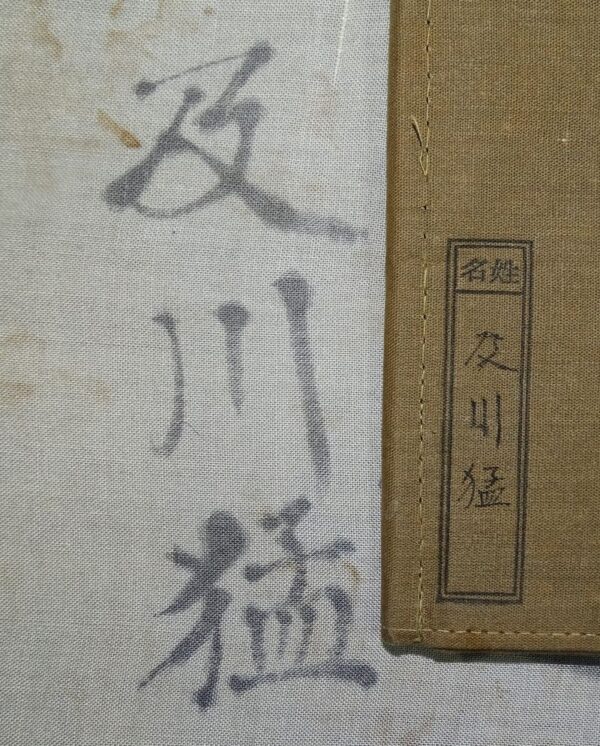 及川猛
姓名
及川猛